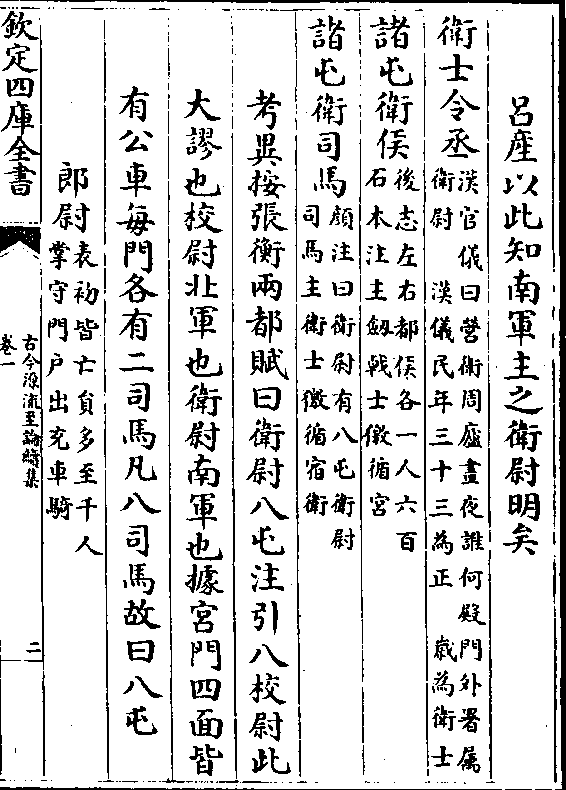 吕産以此知南軍主之衛尉明矣
衛士令丞漢官儀曰營衛周廬晝夜誰何殿門外署屬
衛尉 漢儀民年三十三為正 歲為衛士
諸屯衛候後志左右都候各一人六百
石本注主劔戟士徼循宮
諸屯衛司馬顔注曰衛尉有八屯衛尉
司馬主衛士徼循宿衛
考異按張衡兩都賦曰衛尉八屯注引八校尉此
大謬也校尉北軍也衛尉南軍也據宮門四面皆
有公車每門各有二司馬凡八司馬故曰八屯
郎尉表初皆亡貟多至千人
掌守門户出充車騎
欽定四庫全書
古今源流至論續集
卷一
二